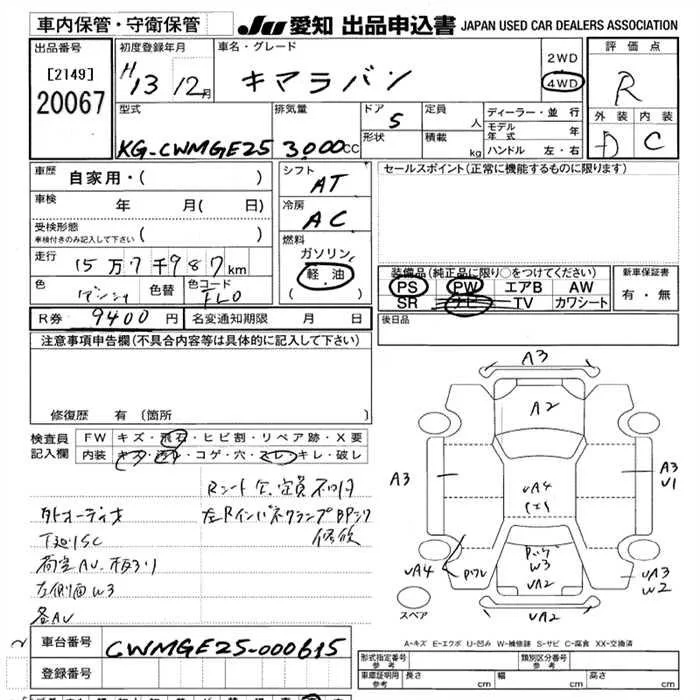 車内保管・守衛保管 JU 愛知 出品申込書 JAPAN USED CAR DEALERS ASSOCIATION
出品番号 初度登録年月 車名・グレード 評価点
[2149] H13 12月 キャラバン 2WD R
20067 4WD
型式 排気量 ドア 定員 ディーラー・並行 外装 内装
KG-CWMGE25 3,000cc 5 人 モデル年式 年 D C
形状 積載 kg ハンドル 左・右
車歴 自家用・( ) シフト AT セールスポイント(正常に機能するものに限ります)
車検 年 月( 日) 冷房 AC
受検形態
車検付きのみ記入して下さい ( ) 燃料
走行 15万7千987km ガソリン
軽油 装備品(純正品に限り○をつけてください) 新車保証書
色 色替 色コード FL0 PS PW エアB AW 有・無
SR ナビ TV カワシート
R券 9400円 名変通知期限 月 日 後日品
注意事項申告欄(不具合内容等は具体的に記入して下さい)
A3
A2
修復歴 有(箇所
検査員 FW キズ・飛石・ヒビ割・リペア跡・X要
記入欄 内装 キズ・汚れ・コゲ・穴・スレ・キレ・破レ
A3 A3
U1
UA4
Rシート 定員不明
外オーディオ
下廻りSC 修放
荷室AU
W3
左側面W3 UA4 UA2 UA3
W2
各AU スペア UA2
A-キズ E-エクボ U-凹み W-補修跡 S-サビ C-腐食 XX-交換済
車台番号 CWMGE25-000615
登録番号
形式指定番号 参考 類別区分番号 参考
車庫証明用 参考 長さ cm 幅 cm 高さ cm